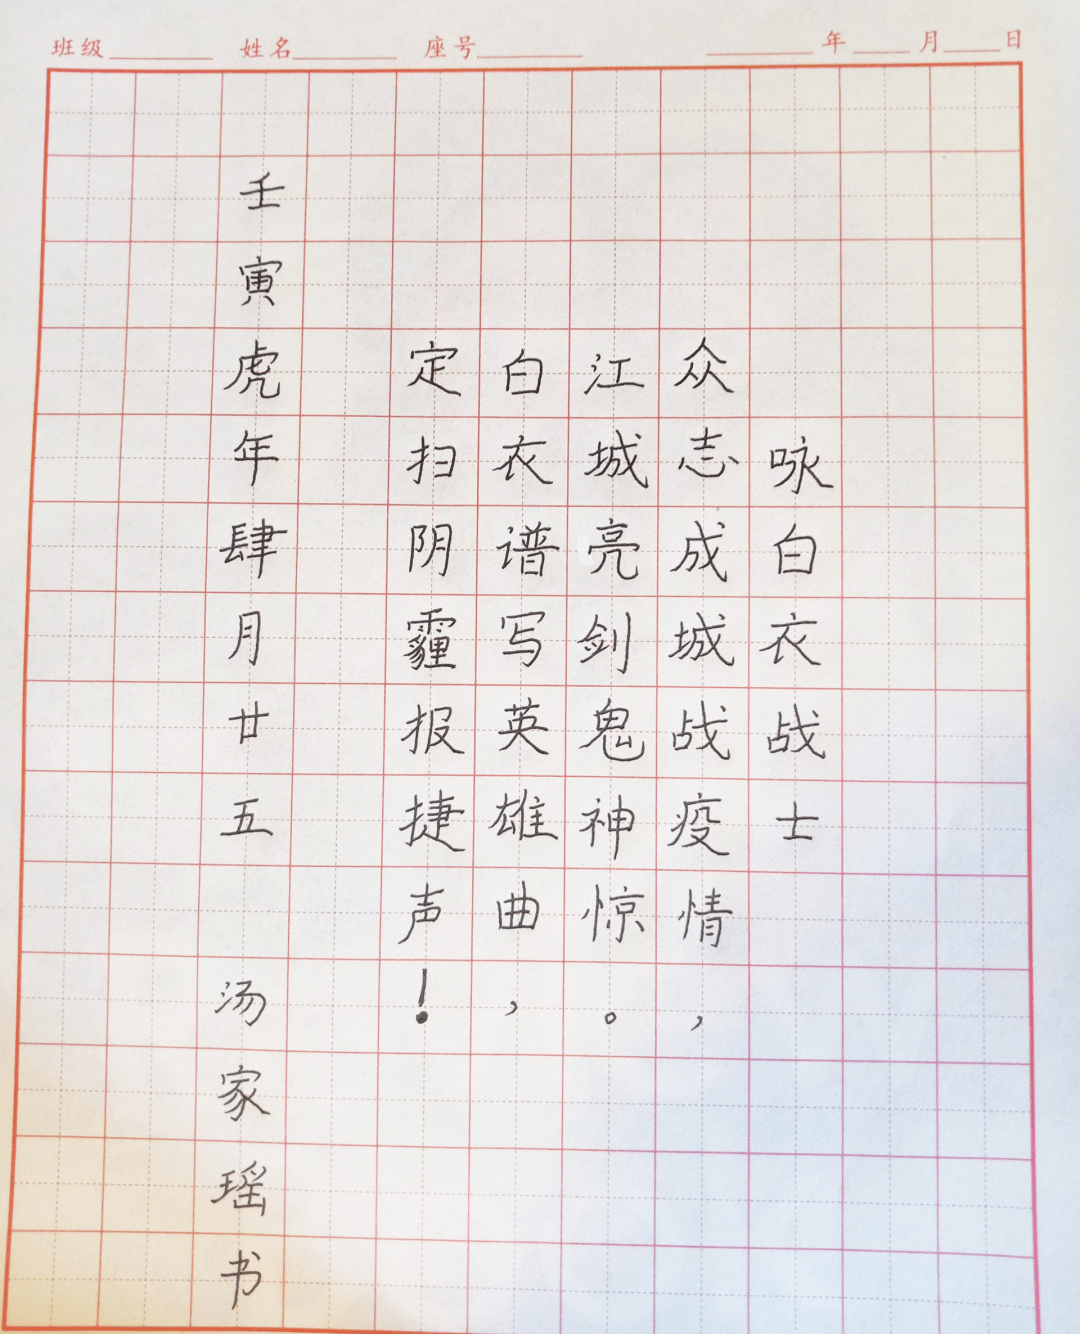 班级 姓名 座号 年 月 日
咏白衣战士
众志成城战疫情，
江城亮剑鬼神惊。
白衣谱写英雄曲，
定扫阴霾报捷声！
壬寅虎年肆月廿五 汤家瑶书